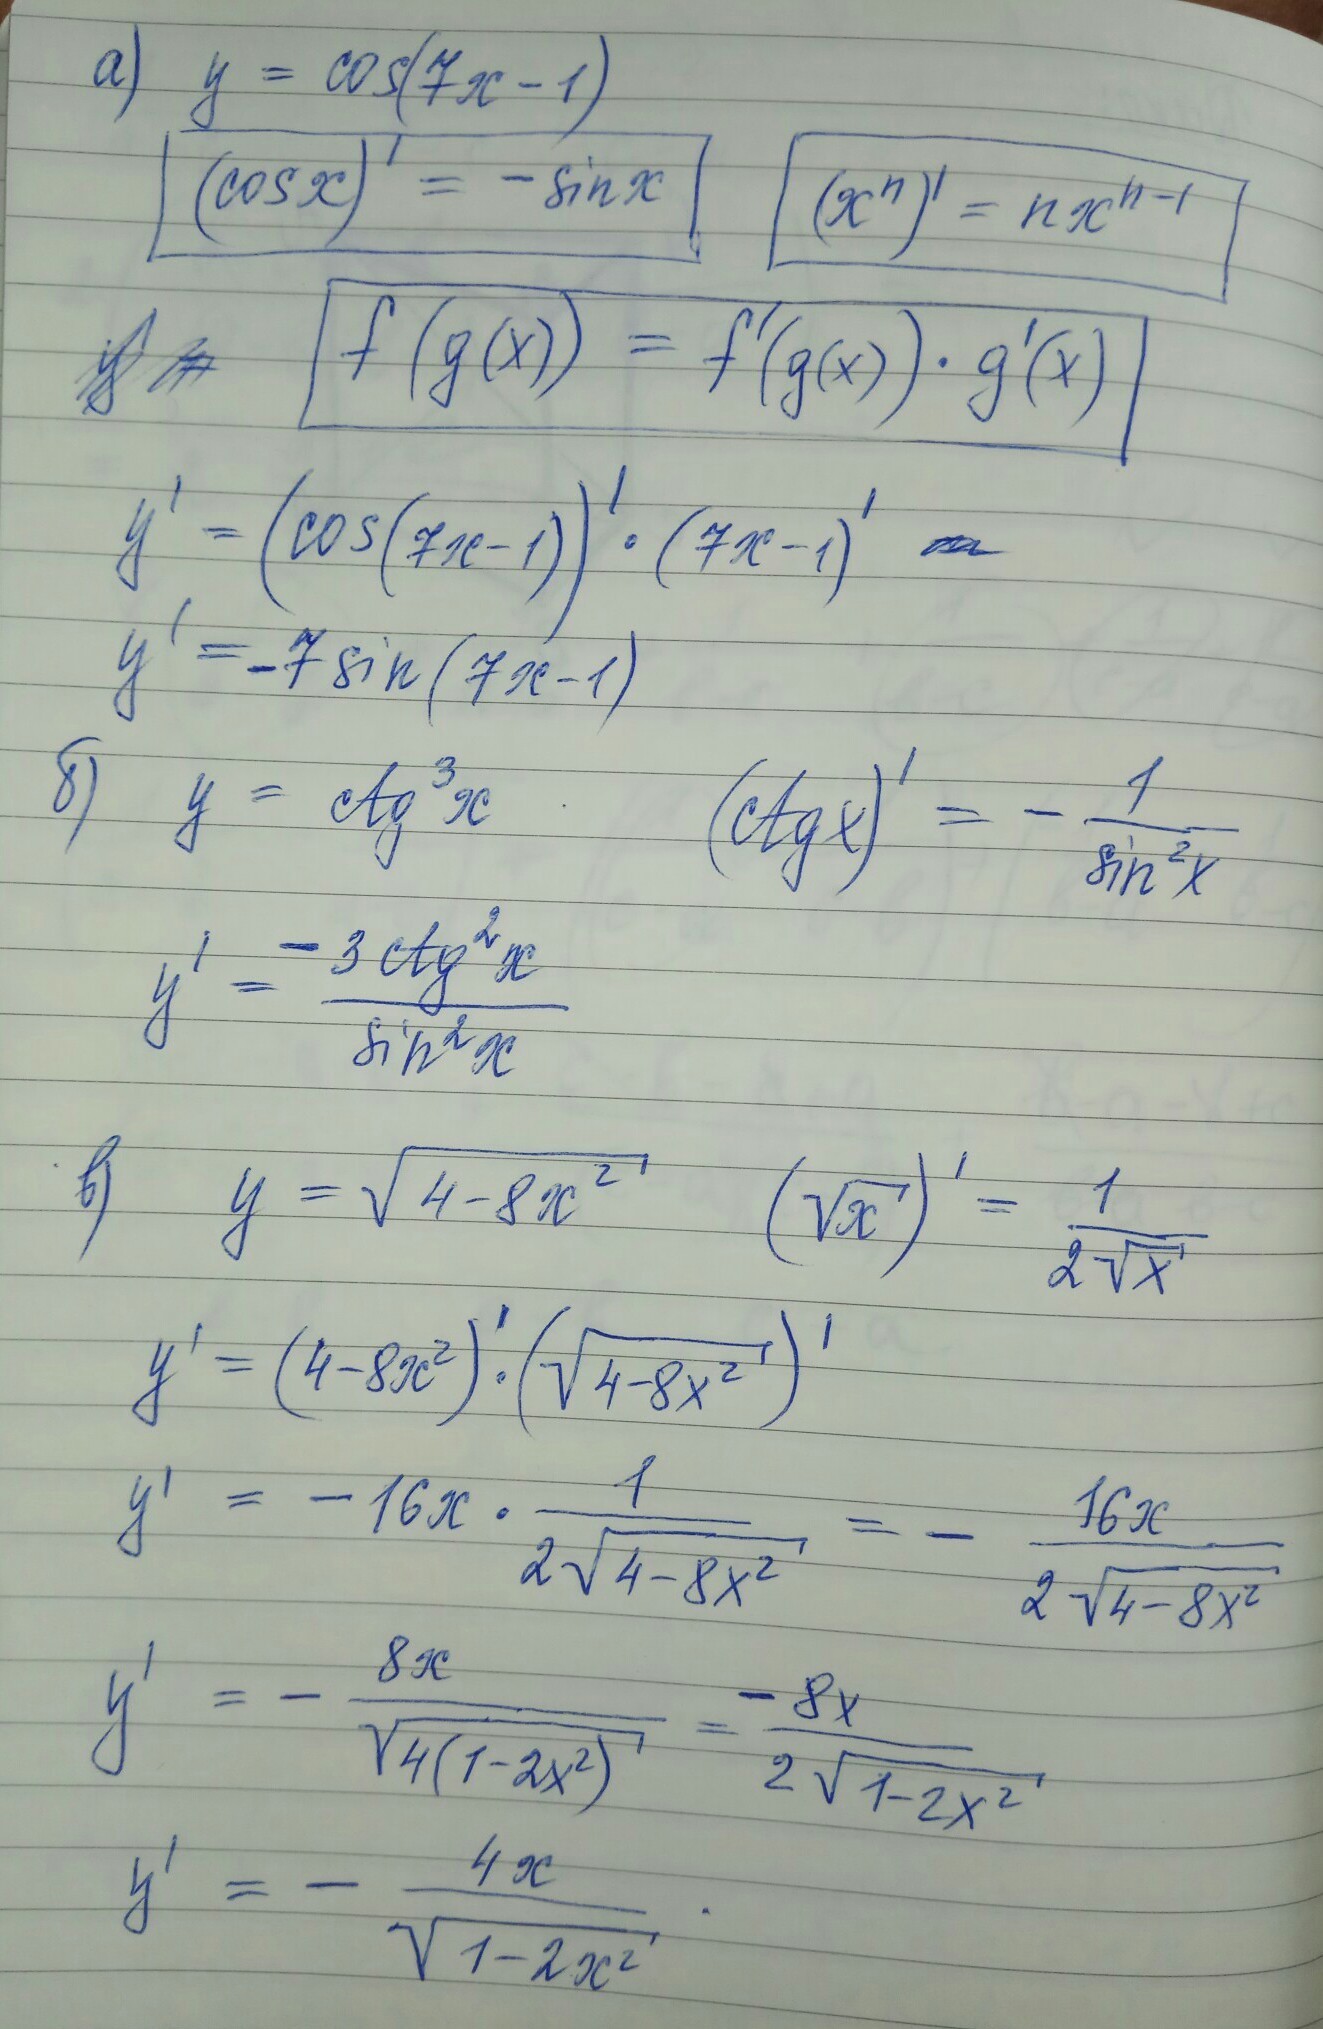 а) y = cos(7x-1)
(cosx)' = -sinx (xⁿ)' = nxⁿ⁻¹
f(g(x)) = f'(g(x))·g'(x)
y' = (cos(7x-1))'·(7x-1)'
y' = -7sin(7x-1)
б) y = ctg³x (ctgx)' = - 1/sin²x
y' = -3ctg²x/sin²x
в) y = √(4-8x²) (√x)' = 1/(2√x)
y' = (4-8x²)'·(√(4-8x²))'
y' = -16x · 1/(2√(4-8x²)) = - 16x/(2√(4-8x²))
y' = - 8x/√(4(1-2x²)) = -8x/(2√(1-2x²))
y' = - 4x/√(1-2x²).